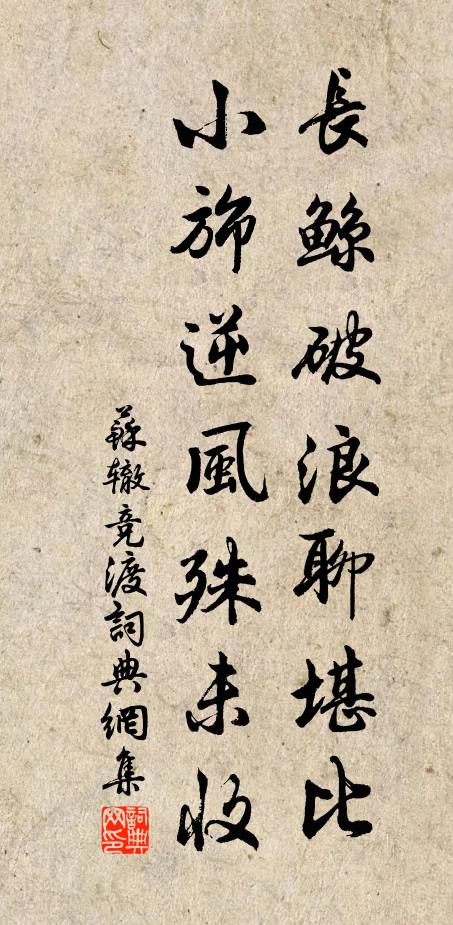 長鯨破浪聊堪比
小旆逆風殊未收
蘇辙竞渡詞典網集
詞典
网印